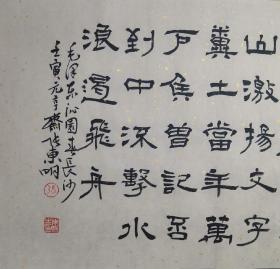 山激揚文字
糞土當年萬
戶侯曽記否
到中流擊水
浪遏飛舟
毛澤東沁園春長沙
壬寅元月
東明